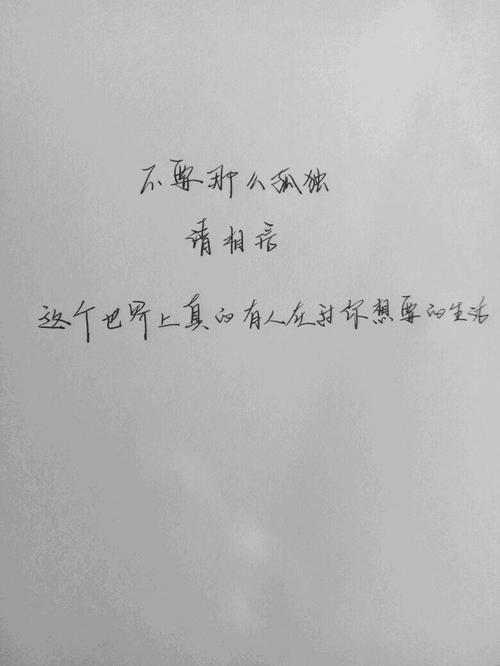 不要那么孤独
请相信
这个世界上真的有人在过你想要的生活